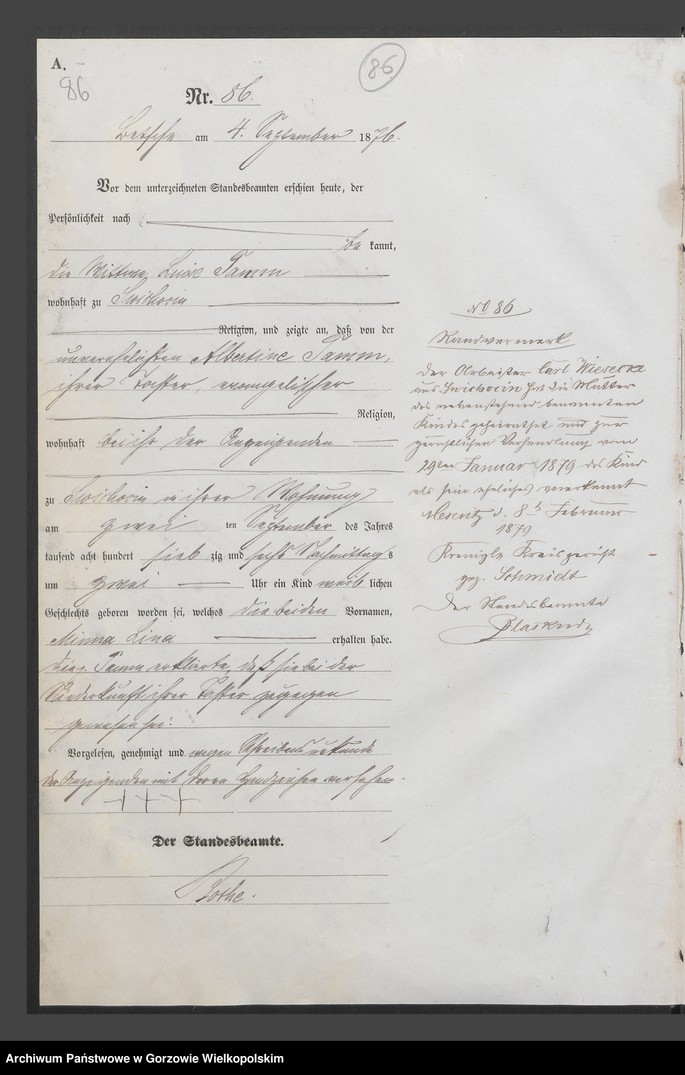 A.
86
86
Nr. 86.
Betsche am 4. September 1876.
Vor dem unterzeichneten Standesbeamten erschien heute, der
Persönlichkeit nach
be kannt,
die Wittwe Luise Tamm
wohnhaft zu Swichocin
Religion, und zeigte an, daß von der
unverehelichten Albertine Tamm,
ihrer Tochter, evangelischer
Religion,
wohnhaft bei ihr der Anzeigenden
zu Swichocin in ihrer Wohnung
am zwei ten September des Jahres
tausend acht hundert sieb zig und sechs Nachmittags
um zwei Uhr ein Kind weib lichen
Geschlechts geboren worden sei, welches die beiden Vornamen,
Minna Lina erhalten habe.
Tamm erklärte, daß sie bei der
Niederkunft ihrer Tochter zugegen
gewesen sei.
Vorgelesen, genehmigt und wegen Schreibensunkunde
der Anzeigenden mit deren Handzeichen versehen.
+++
Der Standesbeamte.
Bothe.
No 86
Randvermerk
Der Arbeiter Carl
aus Swichocin hat die Mutter
des nebenstehend benannten
Kindes geheirathet und zur
gerichtlichen Verhandlung vom
29ten Januar 1879 das Kind
als sein eheliches anerkannt
Meseritz d. 8t Februar
1879
Koenigl. Kreisgericht
gez. Schmidt
Der Standesbeamte
Archiwum Państwowe w Gorzowie Wielkopolskim